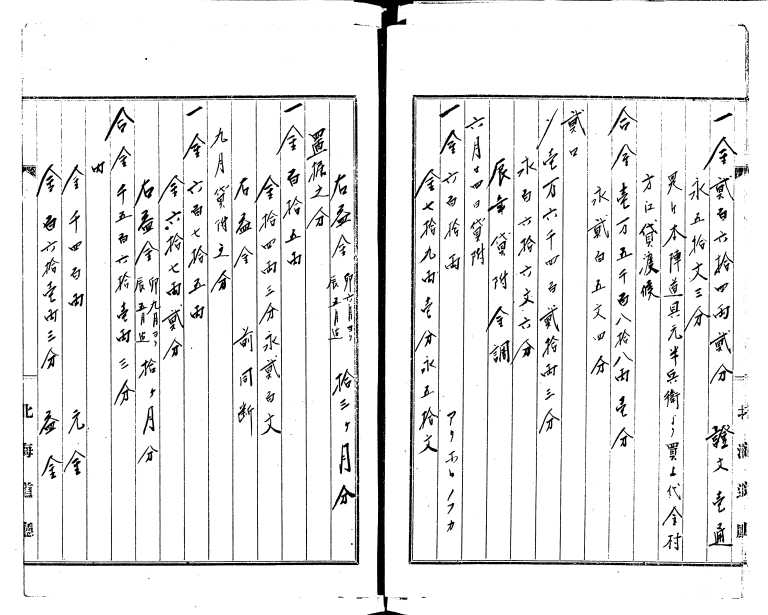 一金貳百六拾四両貳分　證文壱通
永五拾文三分
是ハ本陣道具元半兵衛ゟ買上代金村
方江貸渡候
合金壱万五千百八拾八両壱分
永貳百五文四分
貳口
〆壱万六千四百貳拾両三分
永百六拾六文六分
辰年貸附金調
六月廿四日貸附
一金六百拾両
金七拾九両壱分永五拾文
右益金 卯六月ゟ辰五月迄 拾三ヶ月分
置据之分
一金百拾五両
金拾四両三分永貳百文
右益金　前同断
九月貸附之分
一金六百七拾五両
金六拾七両貳分
右益金 卯九月ゟ辰五月迄 拾ヶ月分
合金千五百六拾壱両三分
内
金千四百両　元金
金百六拾壱両三分　益金
北海道廳